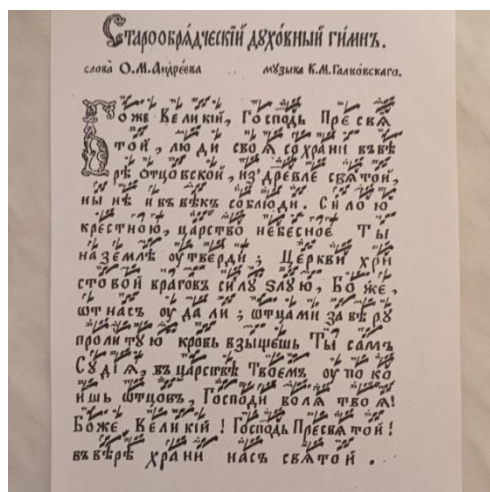 Старообрѧ́дческїй дꙋхо́вный ги́мнъ.
слова̀ О.М.Андре́ева мꙋзыка К.М.Галко́вскаго.
Боже Великїй, Господь Пресвѧ
той, люди своѧ сохрани въ вѣ
рѣ отцовской, из̾древле свѧтой,
ны нѣ и въ вѣкъ соблюди. Силою
крестною, царство небесное Ты
на землѣ оутверди; Церкви Хри
стовой враговъ силꙋ ѕлꙋю, Боже,
ѿ насъ оудали; ѿцами за вѣрꙋ
пролитꙋю кровь взыщешь Ты самъ
Сꙋдїѧ, въ царствѣ Твоемъ оупоко
ишь ѿцовъ, Господи волѧ твоѧ!
Боже, Великїй! Господь Пресвѧтой!
въ вѣрѣ храни насъ свѧтой.